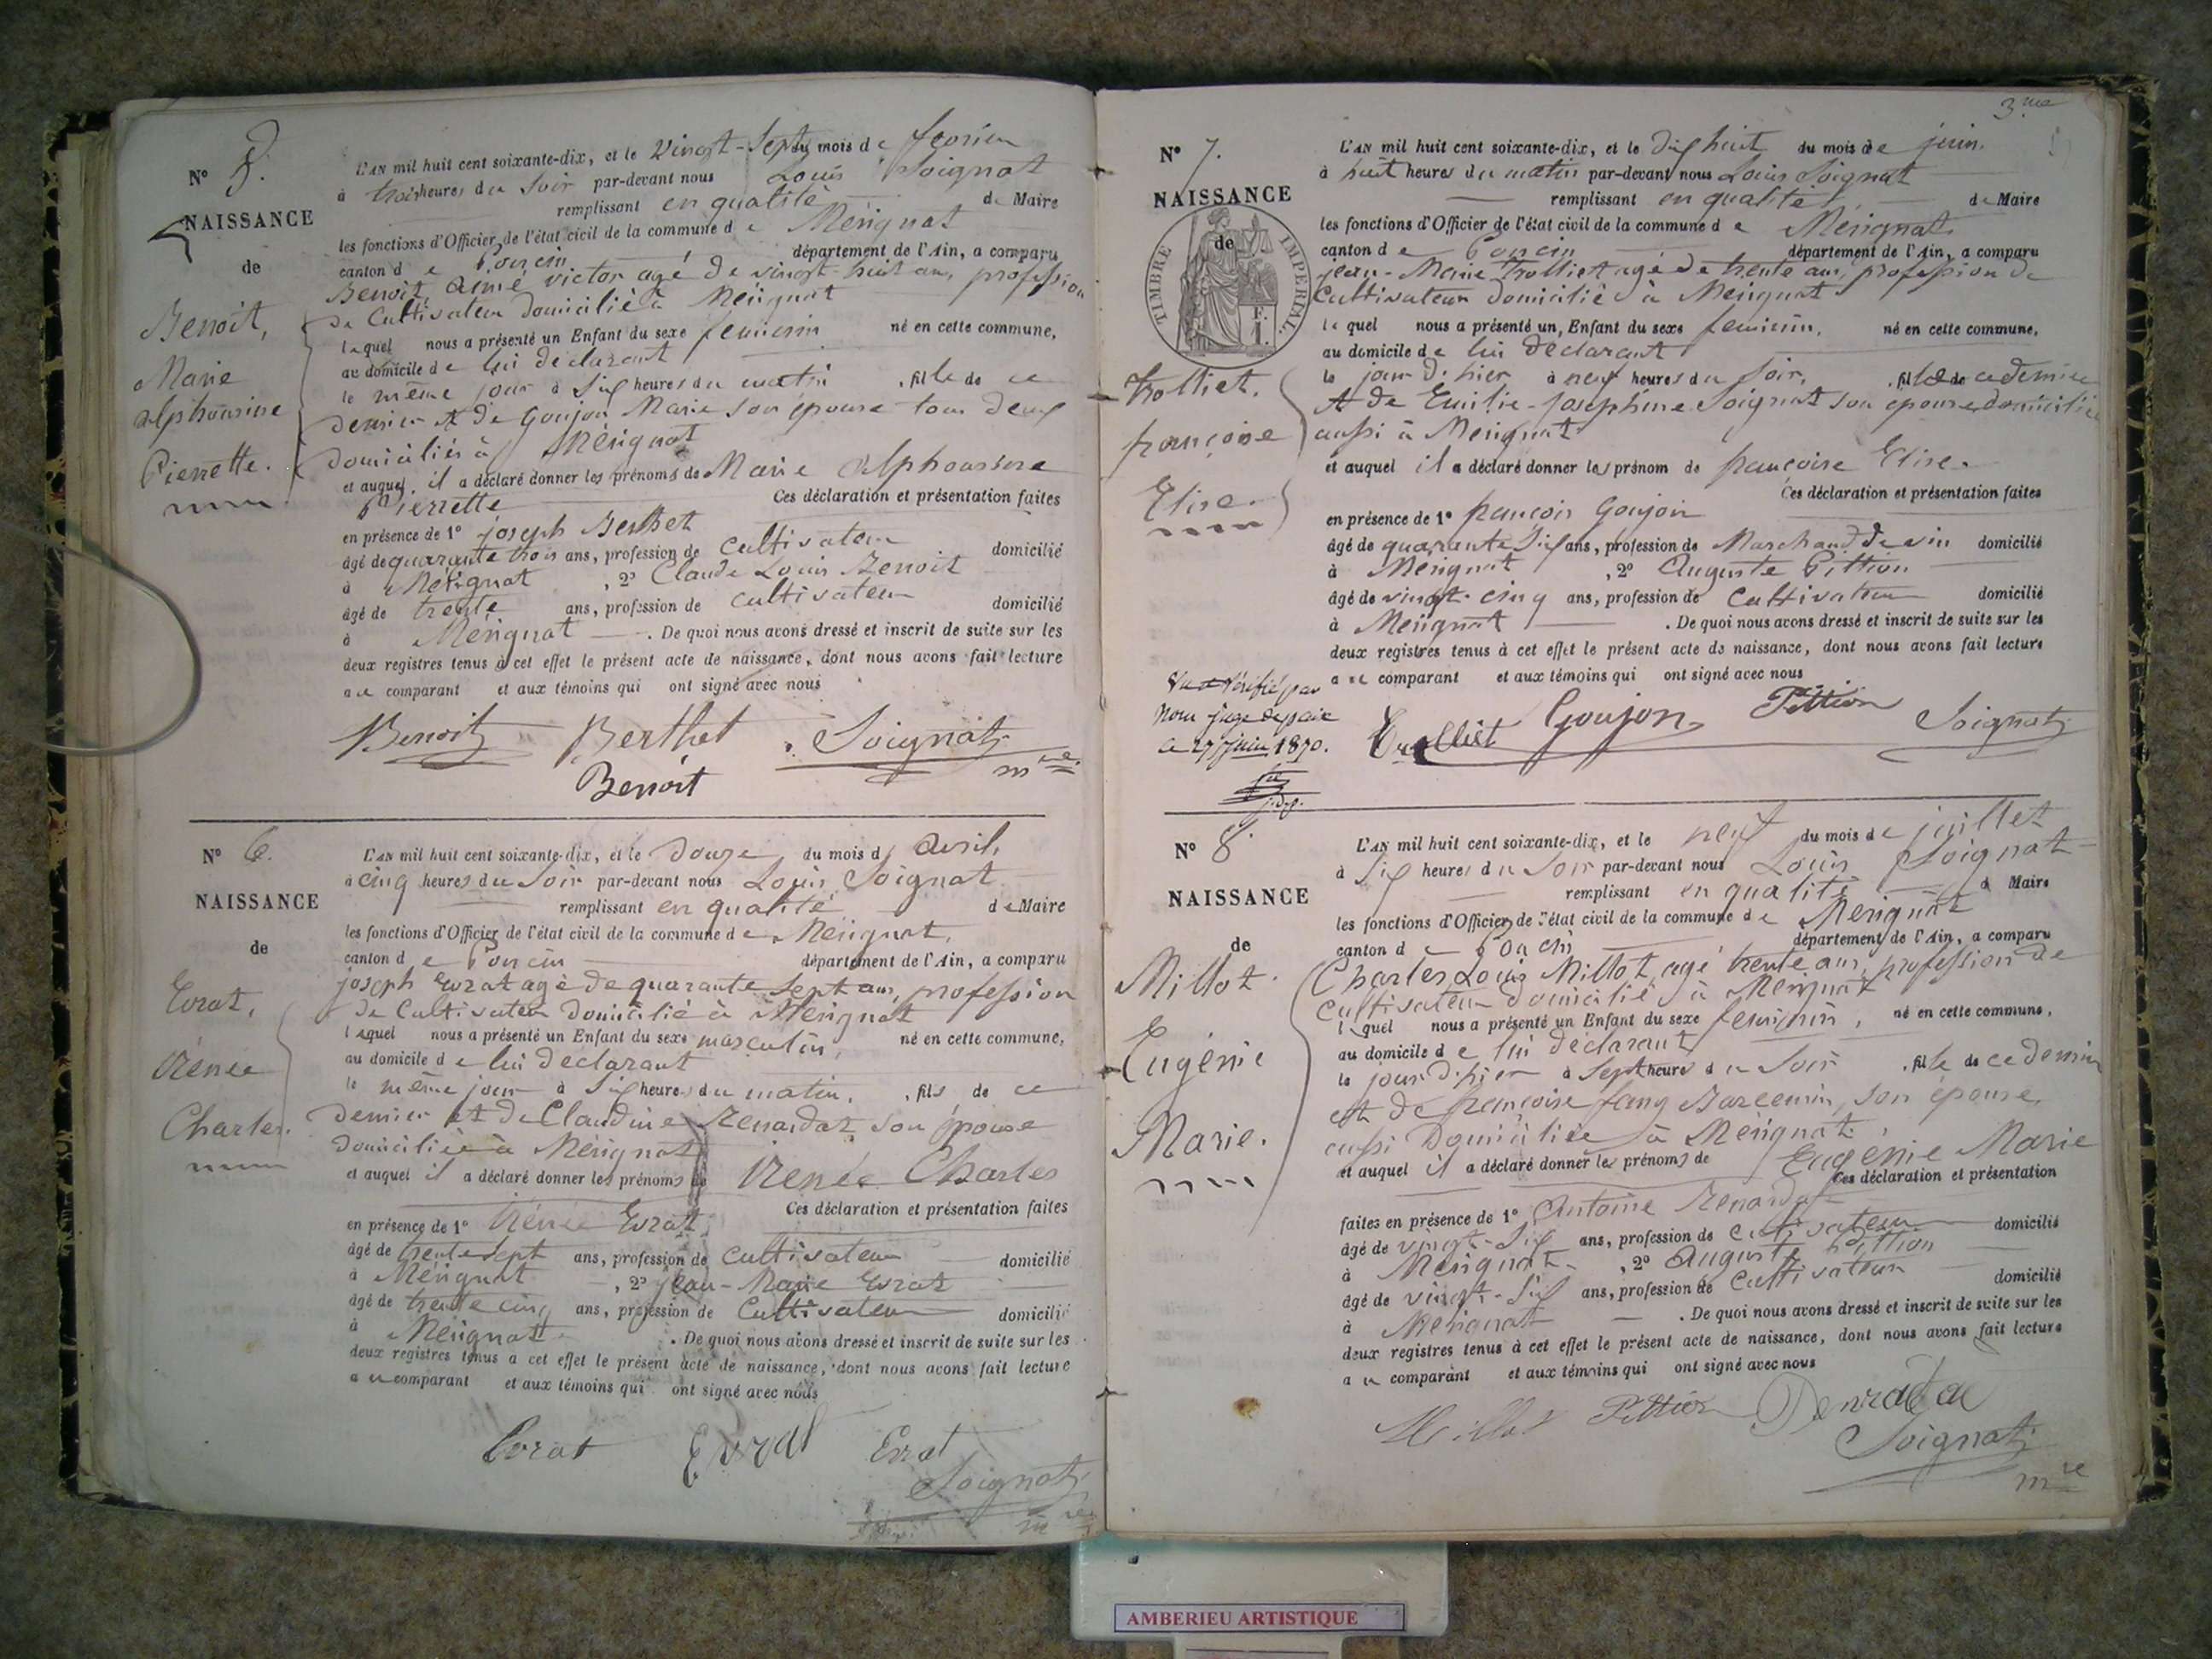 N° 5.
NAISSANCE
de
Benoit,
Marie
alphonsine
Pierrette.
L'AN mil huit cent soixante-dix, et le vingt-sept du mois de fevrier
à trois heures du soir par-devant nous Louis Soignat
remplissant en qualité de Maire
les fonctions d'Officier de l'état civil de la commune de Mérignat
canton de Poncin département de l'Ain, a comparu
Benoit, aimé victor agé de vingt-huit ans, profession
de Cultivateur domicilié à Mérignat
lequel nous a présenté un Enfant du sexe feminin né en cette commune,
au domicile de lui déclarant
le même jour à six heures du matin , fille de ce
dernier et de Goujon Marie son épouse tous deux
domiciliés à Mérignat
et auquel il a déclaré donner les prénoms de Marie Alphonsine
Pierrette Ces déclaration et présentation faites
en présence de 1° joseph Berthet
âgé de quarante trois ans, profession de Cultivateur domicilié
à Mérignat , 2° Claude Louis Benoit
âgé de trente ans, profession de cultivateur domicilié
à Mérignat . De quoi nous avons dressé et inscrit de suite sur les
deux registres tenus à cet effet le présent acte de naissance, dont nous avons fait lecture
au comparant et aux témoins qui ont signé avec nous
Benoit Berthet Soignat
Benoit mre
N° 6.
NAISSANCE
de
Evrat,
irénée
Charles.
L'AN mil huit cent soixante-dix, et le Douze du mois d'Avril,
à cinq heures du Soir par-devant nous Louis Soignat
remplissant en qualité de Maire
les fonctions d'Officier de l'état civil de la commune de Mérignat,
canton de Poncin département de l'Ain, a comparu
joseph Evrat agé de quarante sept ans, profession
de Cultivateur domicilié à Mérignat
lequel nous a présenté un Enfant du sexe masculin, né en cette commune,
au domicile de lui déclarant
le même jour à six heures du matin, , fils de ce
dernier et de Claudine Renardat son épouse
domiciliée à Mérignat
et auquel il a déclaré donner les prénoms de irénée Charles
Ces déclaration et présentation faites
en présence de 1° irénée Evrat
âgé de trente sept ans, profession de cultivateur domicilié
à Mérignat , 2° jean-Marie Evrat
âgé de trente cinq ans, profession de Cultivateur domicilié
à Mérignat . De quoi nous avons dressé et inscrit de suite sur les
deux registres tenus à cet effet le présent acte de naissance, dont nous avons fait lecture
au comparant et aux témoins qui ont signé avec nous
Evrat Evrat Evrat
Soignat
mre
3.me
N° 7.
NAISSANCE
de
TIMBRE IMPERIAL.
F.
1.
Trolliet.
françoise
Elise.
L'AN mil huit cent soixante-dix, et le dix huit du mois de juin.
à huit heures du matin par-devant nous Louis Soignat
remplissant en qualité de Maire
les fonctions d'Officier de l'état civil de la commune de Mérignat
canton de Poncin département de l'Ain, a comparu
jean-Marie Trolliet agé de trente ans, profession de
Cultivateur domicilié à Mérignat
lequel nous a présenté un Enfant du sexe feminin, né en cette commune,
au domicile de lui déclarant
le jour d'hier à neuf heures du soir, , fille de ce dernier
et de Emilie-josephine Soignat son épouse domiciliée
aussi à Mérignat
et auquel il a déclaré donner les prénom de françoise Elise.
Ces déclaration et présentation faites
en présence de 1° françois Goujon
âgé de quarante six ans, profession de Marchand de vin domicilié
à Mérignat , 2° Auguste Pittion
âgé de vingt-cinq ans, profession de Cultivateur domicilié
à Mérignat . De quoi nous avons dressé et inscrit de suite sur les
deux registres tenus à cet effet le présent acte de naissance, dont nous avons fait lecture
au comparant et aux témoins qui ont signé avec nous
Vu et vérifié par
Nous juge de paix
le 27 juin 1870.
j.d.p.
Trolliet Goujon Pittion Soignat
N° 8.
NAISSANCE
de
Millot.
Eugénie
Marie.
L'AN mil huit cent soixante-dix, et le neuf du mois de juillet
à six heures du soir par-devant nous Louis Soignat
remplissant en qualité de Maire
les fonctions d'Officier de l'état civil de la commune de Mérignat
canton de Poncin département de l'Ain, a comparu
Charles Louis Millot, agé trente ans, profession de
cultivateur domicilié à Mérignat
lequel nous a présenté un Enfant du sexe feminin, né en cette commune,
au domicile de lui déclarant
le jour d'hier à sept heures du Soir , fille de ce dernier
et de françoise fany son épouse,
aussi Domiciliée à Mérignat.
et auquel il a déclaré donner les prénoms de Eugénie Marie
Ces déclaration et présentation
faites en présence de 1° Antoine Renardat
âgé de vingt-six ans, profession de cultivateur domicilié
à Mérignat , 2° Auguste Pittion
âgé de vingt-six ans, profession de Cultivateur domicilié
à Mérignat . De quoi nous avons dressé et inscrit de suite sur les
deux registres tenus à cet effet le présent acte de naissance, dont nous avons fait lecture
au comparant et aux témoins qui ont signé avec nous
Millot Pittion
Soignat
mre
AMBERIEU ARTISTIQUE